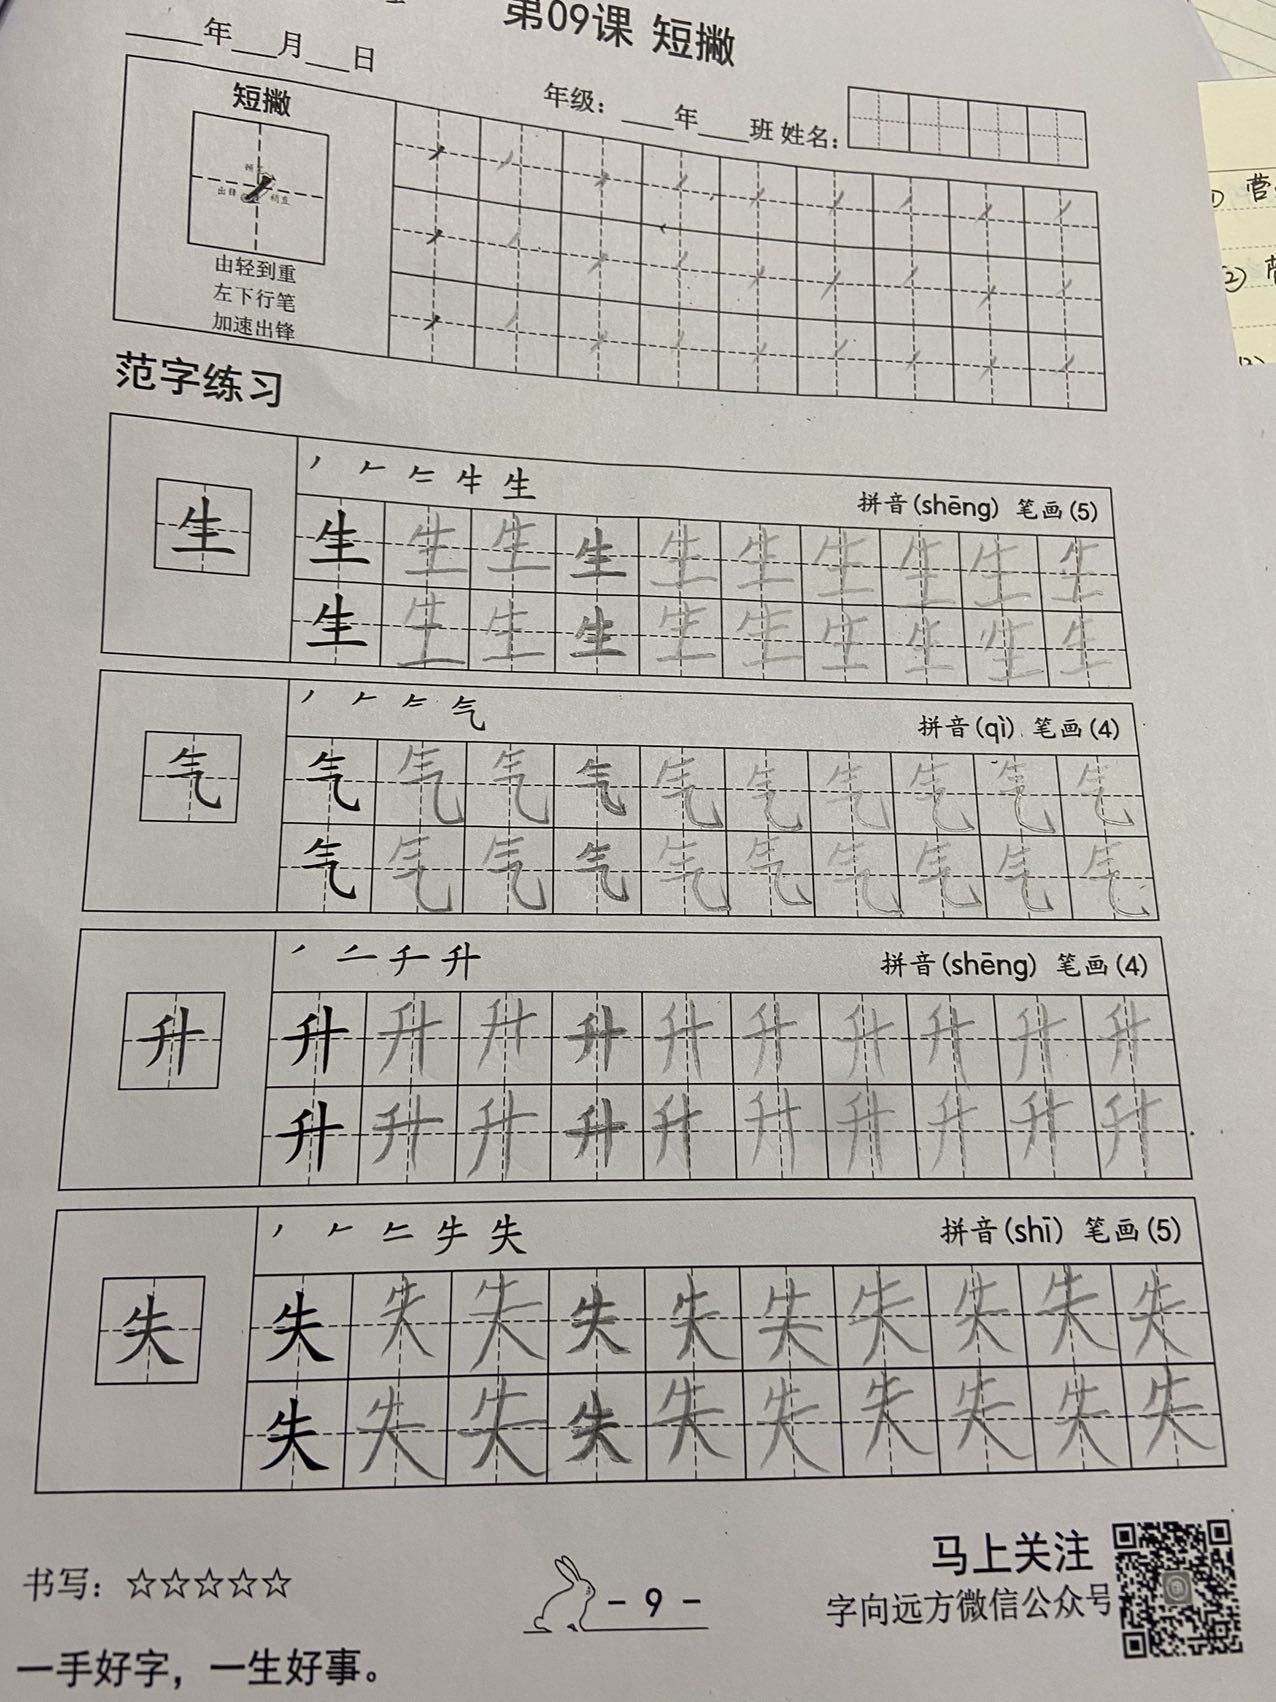 第09课 短撇
____年___月___日
年级：____年____班 姓名：
短撇
出锋
由轻到重
左下行笔
加速出锋
营
① 
② 
范字练习
生
拼音(shēng) 笔画(5)
生 生 生 生 生 生 生 生 生 生
生 生 生 生 生 生 生 生 生 生
生
气
拼音(qì) 笔画(4)
气 气 气 气 气 气 气 气 气 气
气 气 气 气 气 气 气 气 气 气
气
升
拼音(shēng) 笔画(4)
升 升 升 升 升 升 升 升 升 升
升 升 升 升 升 升 升 升 升 升
升
失
拼音(shī) 笔画(5)
失 失 失 失 失 失 失 失 失 失
失 失 失 失 失 失 失 失 失 失
失
书写：☆☆☆☆☆
- 9 -
马上关注
字向远方微信公众号
一手好字，一生好事。